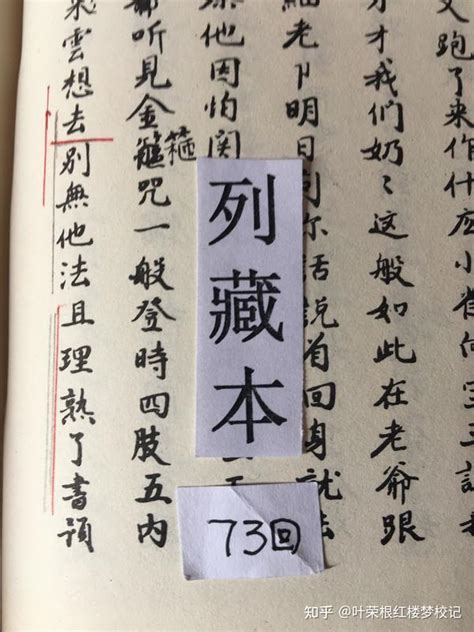 又跑了来作什庅小雀向宝玉説
才我们奶々这般如此在老爺跟
細老卩明日
話説
回身就
他因怕関
都听見金箍咒一般登時四肢五内
箍
来雲想去別無他法且理熟了書預
列藏本
73回
知乎 @叶荣根红楼梦校记